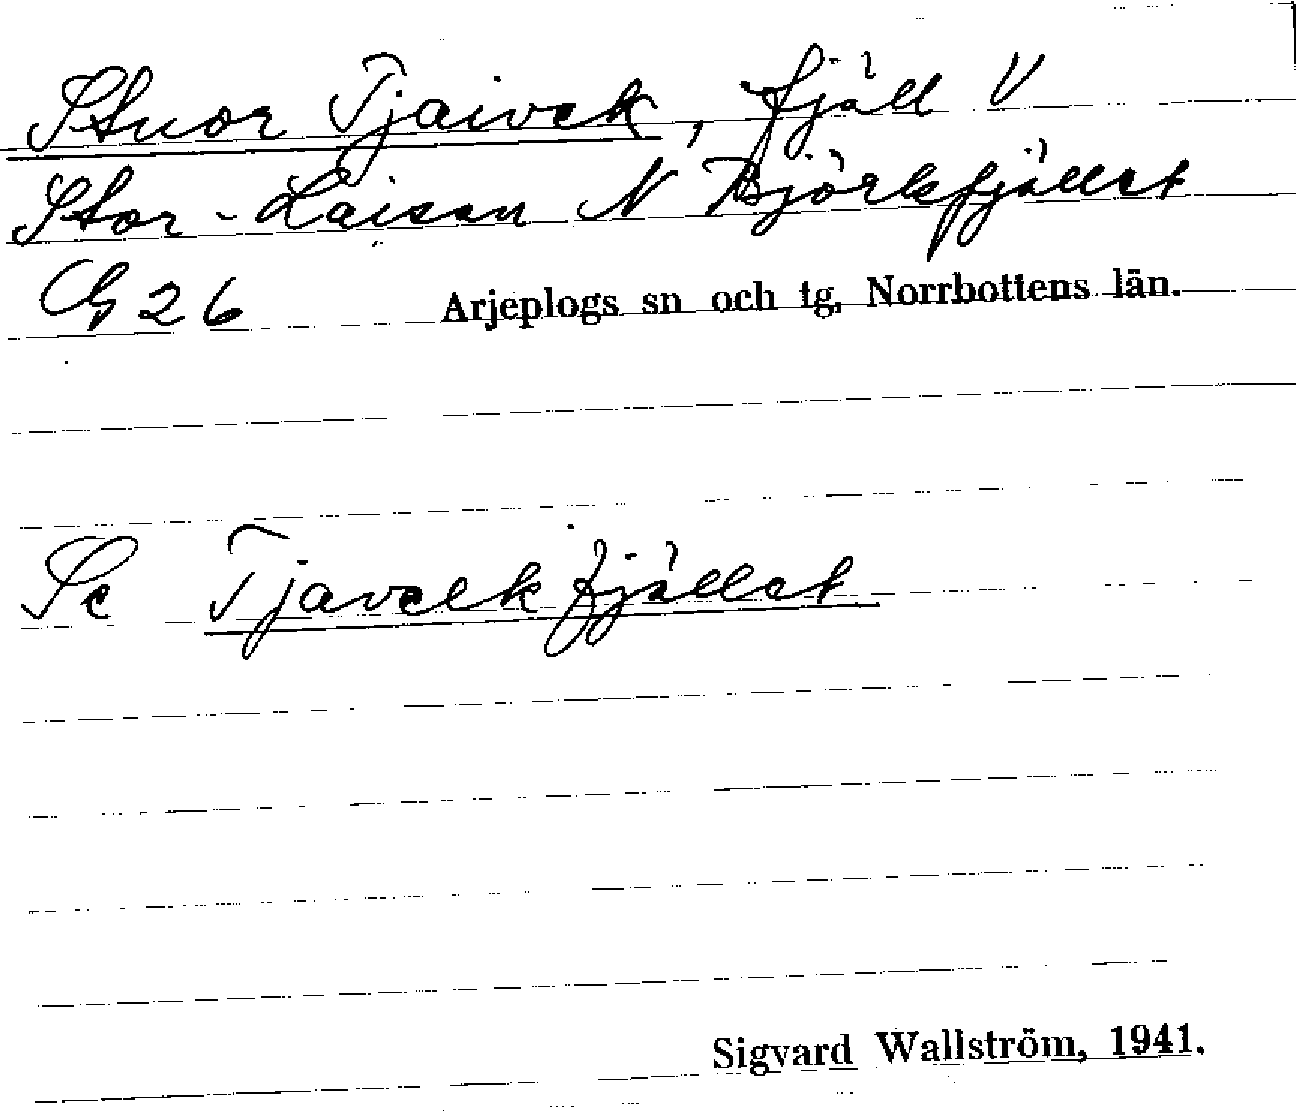 Stuor Tjaivek, fjäll V
Stor-Laisan N Björkfjället
G 26 Arjeplogs sn och tg, Norrbottens län.
Se Tjavelkfjället
Sigvard Wallström, 1941.